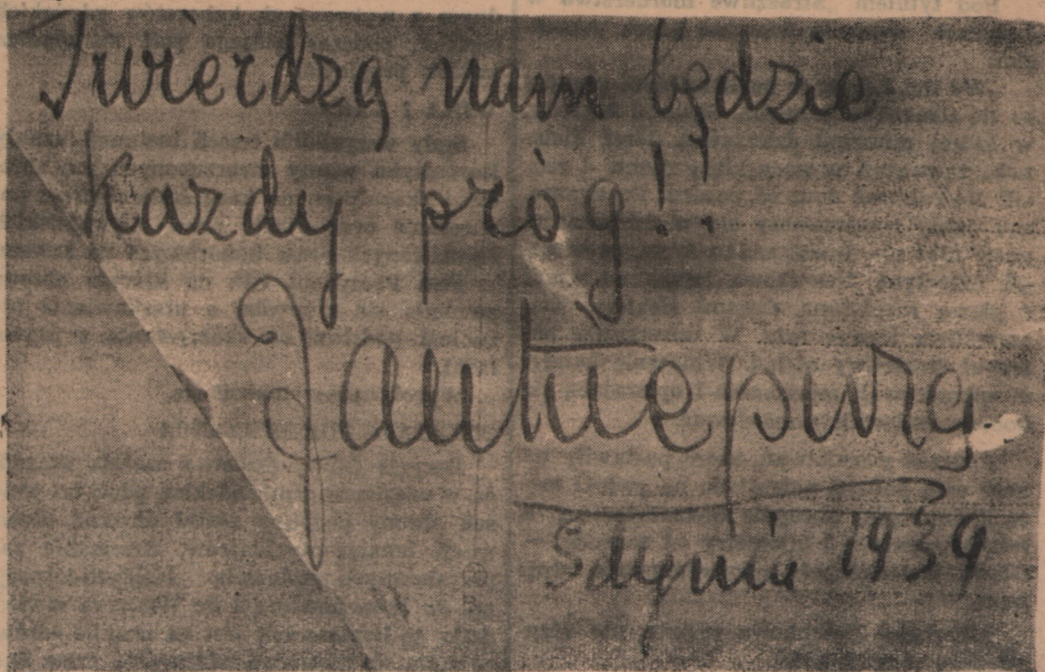 Twierdzą nam będzie
Kazdy próg!!
Jan Kiepura
Gdynia 1939